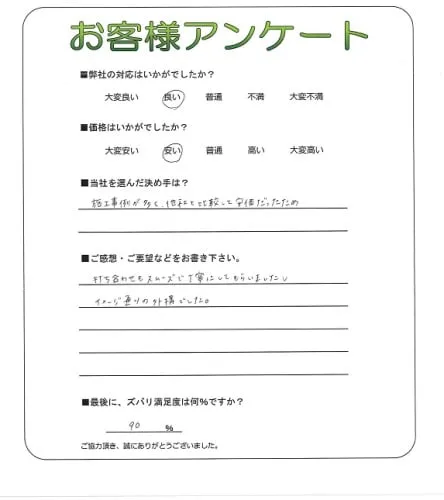 お客様アンケート
■弊社の対応はいかがでしたか?
大変良い 良い 普通 不満 大変不満
■価格はいかがでしたか?
大変安い 安い 普通 高い 大変高い
■当社を選んだ決め手は?
施工事例が多く、他社と比較して安価だったため
■ご感想・ご要望などをお書き下さい。
打ち合わせもスムーズで丁寧にしてもらいましたし
イメージ通りの外構でした。
■最後に、ズバリ満足度は何%ですか?
90 %
ご協力頂き、誠にありがとうございました。